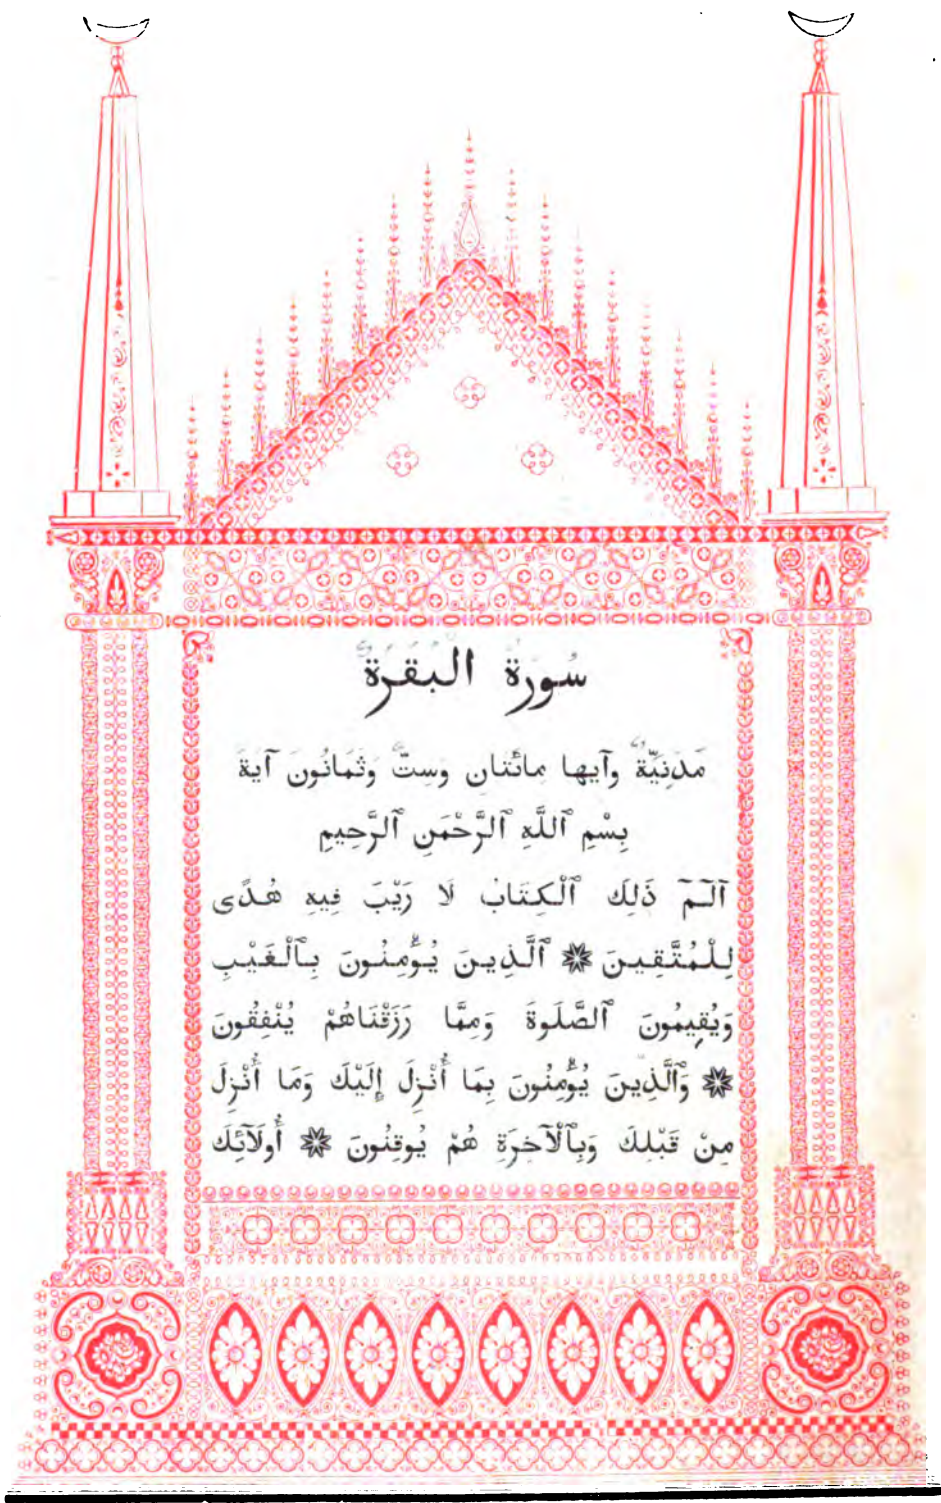 سُورَةُ الْبَقَرَةِ
مَدَنِيَّةٌ وَآيها مائَتَانِ وَسِتٌّ وَثَمَانُونَ آيَةً
بِسْمِ ٱللَّهِ ٱلرَّحْمَنِ ٱلرَّحِيمِ
آلٓمٓ ذَلِكَ ٱلْكِتَابُ لَا رَيْبَ فِيهِ هُدًى
لِلْمُتَّقِينَ ۞ ٱلَّذِينَ يُؤْمِنُونَ بِٱلْغَيْبِ
وَيُقِيمُونَ ٱلصَّلَوةَ وَمِمَّا رَزَقْنَاهُمْ يُنْفِقُونَ
۞ وَٱلَّذِينَ يُؤْمِنُونَ بِمَا أُنْزِلَ إِلَيْكَ وَمَا أُنْزِلَ
مِنْ قَبْلِكَ وَبِٱلْآخِرَةِ هُمْ يُوقِنُونَ ۞ أُولَآئِكَ